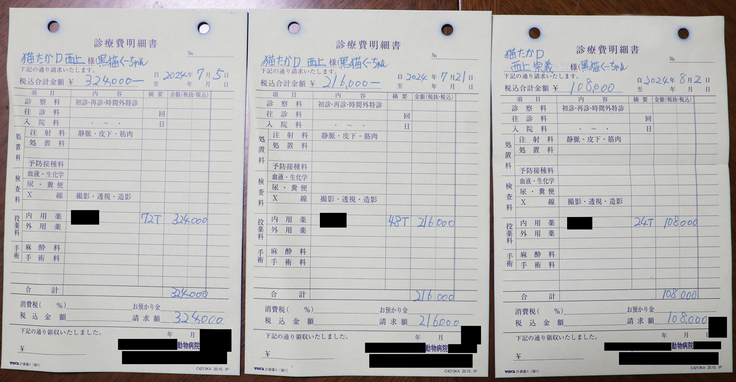 診療費明細書
№
猫たかD 西上 様(黒猫くーちゃん
下記の通り請求いたします。
自 2024年 7月 5日
税込合計金額 ¥ 324,000-
項 目 内 容 摘 要 金額(税抜・税込)
診 察 料 初診・再診・時間外特診
往 診 料 回
入 院 料 ・ ~ ・ 日
処置料 注 射 料 静脈・皮下・筋肉
処 置 料
予防接種料
検査料 血液・生化学
尿・糞便
X 線 撮影・透視・造影
投薬料 内 用 薬 72T 324,000
外 用 薬
手術 麻 酔 料
手 術 料
合 計 324,000
消費税( %) お預かり金
税 込 金 額 請 求 額 324,000
下記の通り領収いたしました。 年 月
¥
動物病院
C4213KA 20.10. 1P
診療費明細書
№
猫たかD 西上 様(黒猫くーちゃん
下記の通り請求いたします。
自 2024年 7月 21日
税込合計金額 ¥ 216,000-
項 目 内 容 摘 要 金額(税抜・税込)
診 察 料 初診・再診・時間外特診
往 診 料 回
入 院 料 ・ ~ ・ 日
処置料 注 射 料 静脈・皮下・筋肉
処 置 料
予防接種料
検査料 血液・生化学
尿・糞便
X 線 撮影・透視・造影
投薬料 内 用 薬 48T 216,000
外 用 薬
手術 麻 酔 料
手 術 料
合 計 216,000
消費税( %) お預かり金
税 込 金 額 請 求 額 216,000
下記の通り領収いたしました。 年 月
¥
動物病院
C4213KA 20.10. 1P
診療費明細書
№
猫たかD
西上 様(黒猫くーちゃん
下記の通り請求いたします。
自 2024年 8月 2日
税込合計金額 ¥ 108,000
項 目 内 容 摘 要 金額(税抜・税込)
診 察 料 初診・再診・時間外特診
往 診 料 回
入 院 料 ・ ~ ・ 日
処置料 注 射 料 静脈・皮下・筋肉
処 置 料
予防接種料
検査料 血液・生化学
尿・糞便
X 線 撮影・透視・造影
投薬料 内 用 薬 24T 108,000
外 用 薬
手術 麻 酔 料
手 術 料
合 計 108,000
消費税( %) お預かり金
税 込 金 額 請 求 額 108,000
下記の通り領収いたしました。 年 月
¥
動物病院
C4213KA 20.10. 1P